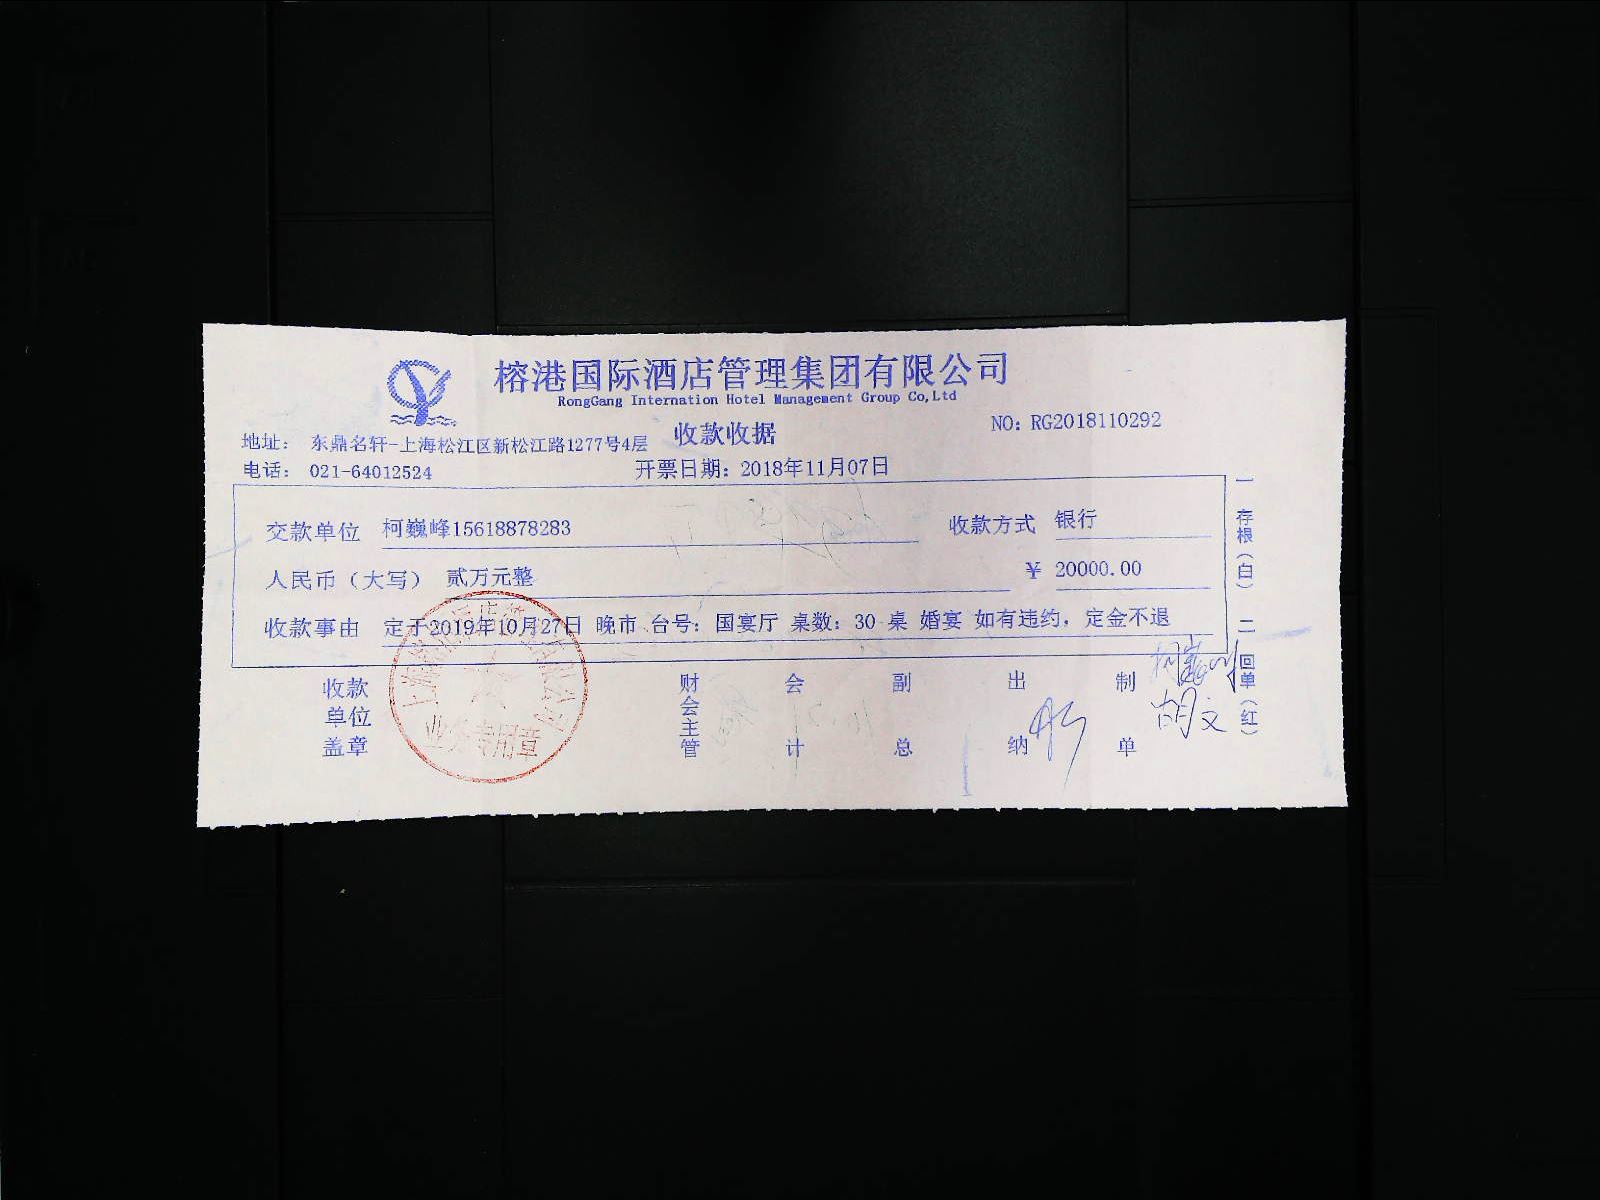 榕港国际酒店管理集团有限公司
RongGang Internation Hotel Management Group Co,Ltd
收款收据
NO: RG2018110292
地址： 东鼎名轩-上海松江区新松江路1277号4层
电话： 021-64012524
开票日期：2018年11月07日
交款单位 柯巍峰15618878283 收款方式 银行
人民币（大写） 贰万元整 ¥ 20000.00
收款事由 定于2019年10月27日 晚市 台号：国宴厅 桌数：30 桌 婚宴 如有违约，定金不退
收款单位盖章 财会主管 会计 副总 出纳 制单 胡文
业务专用章
一存根（白） 二回单（红）